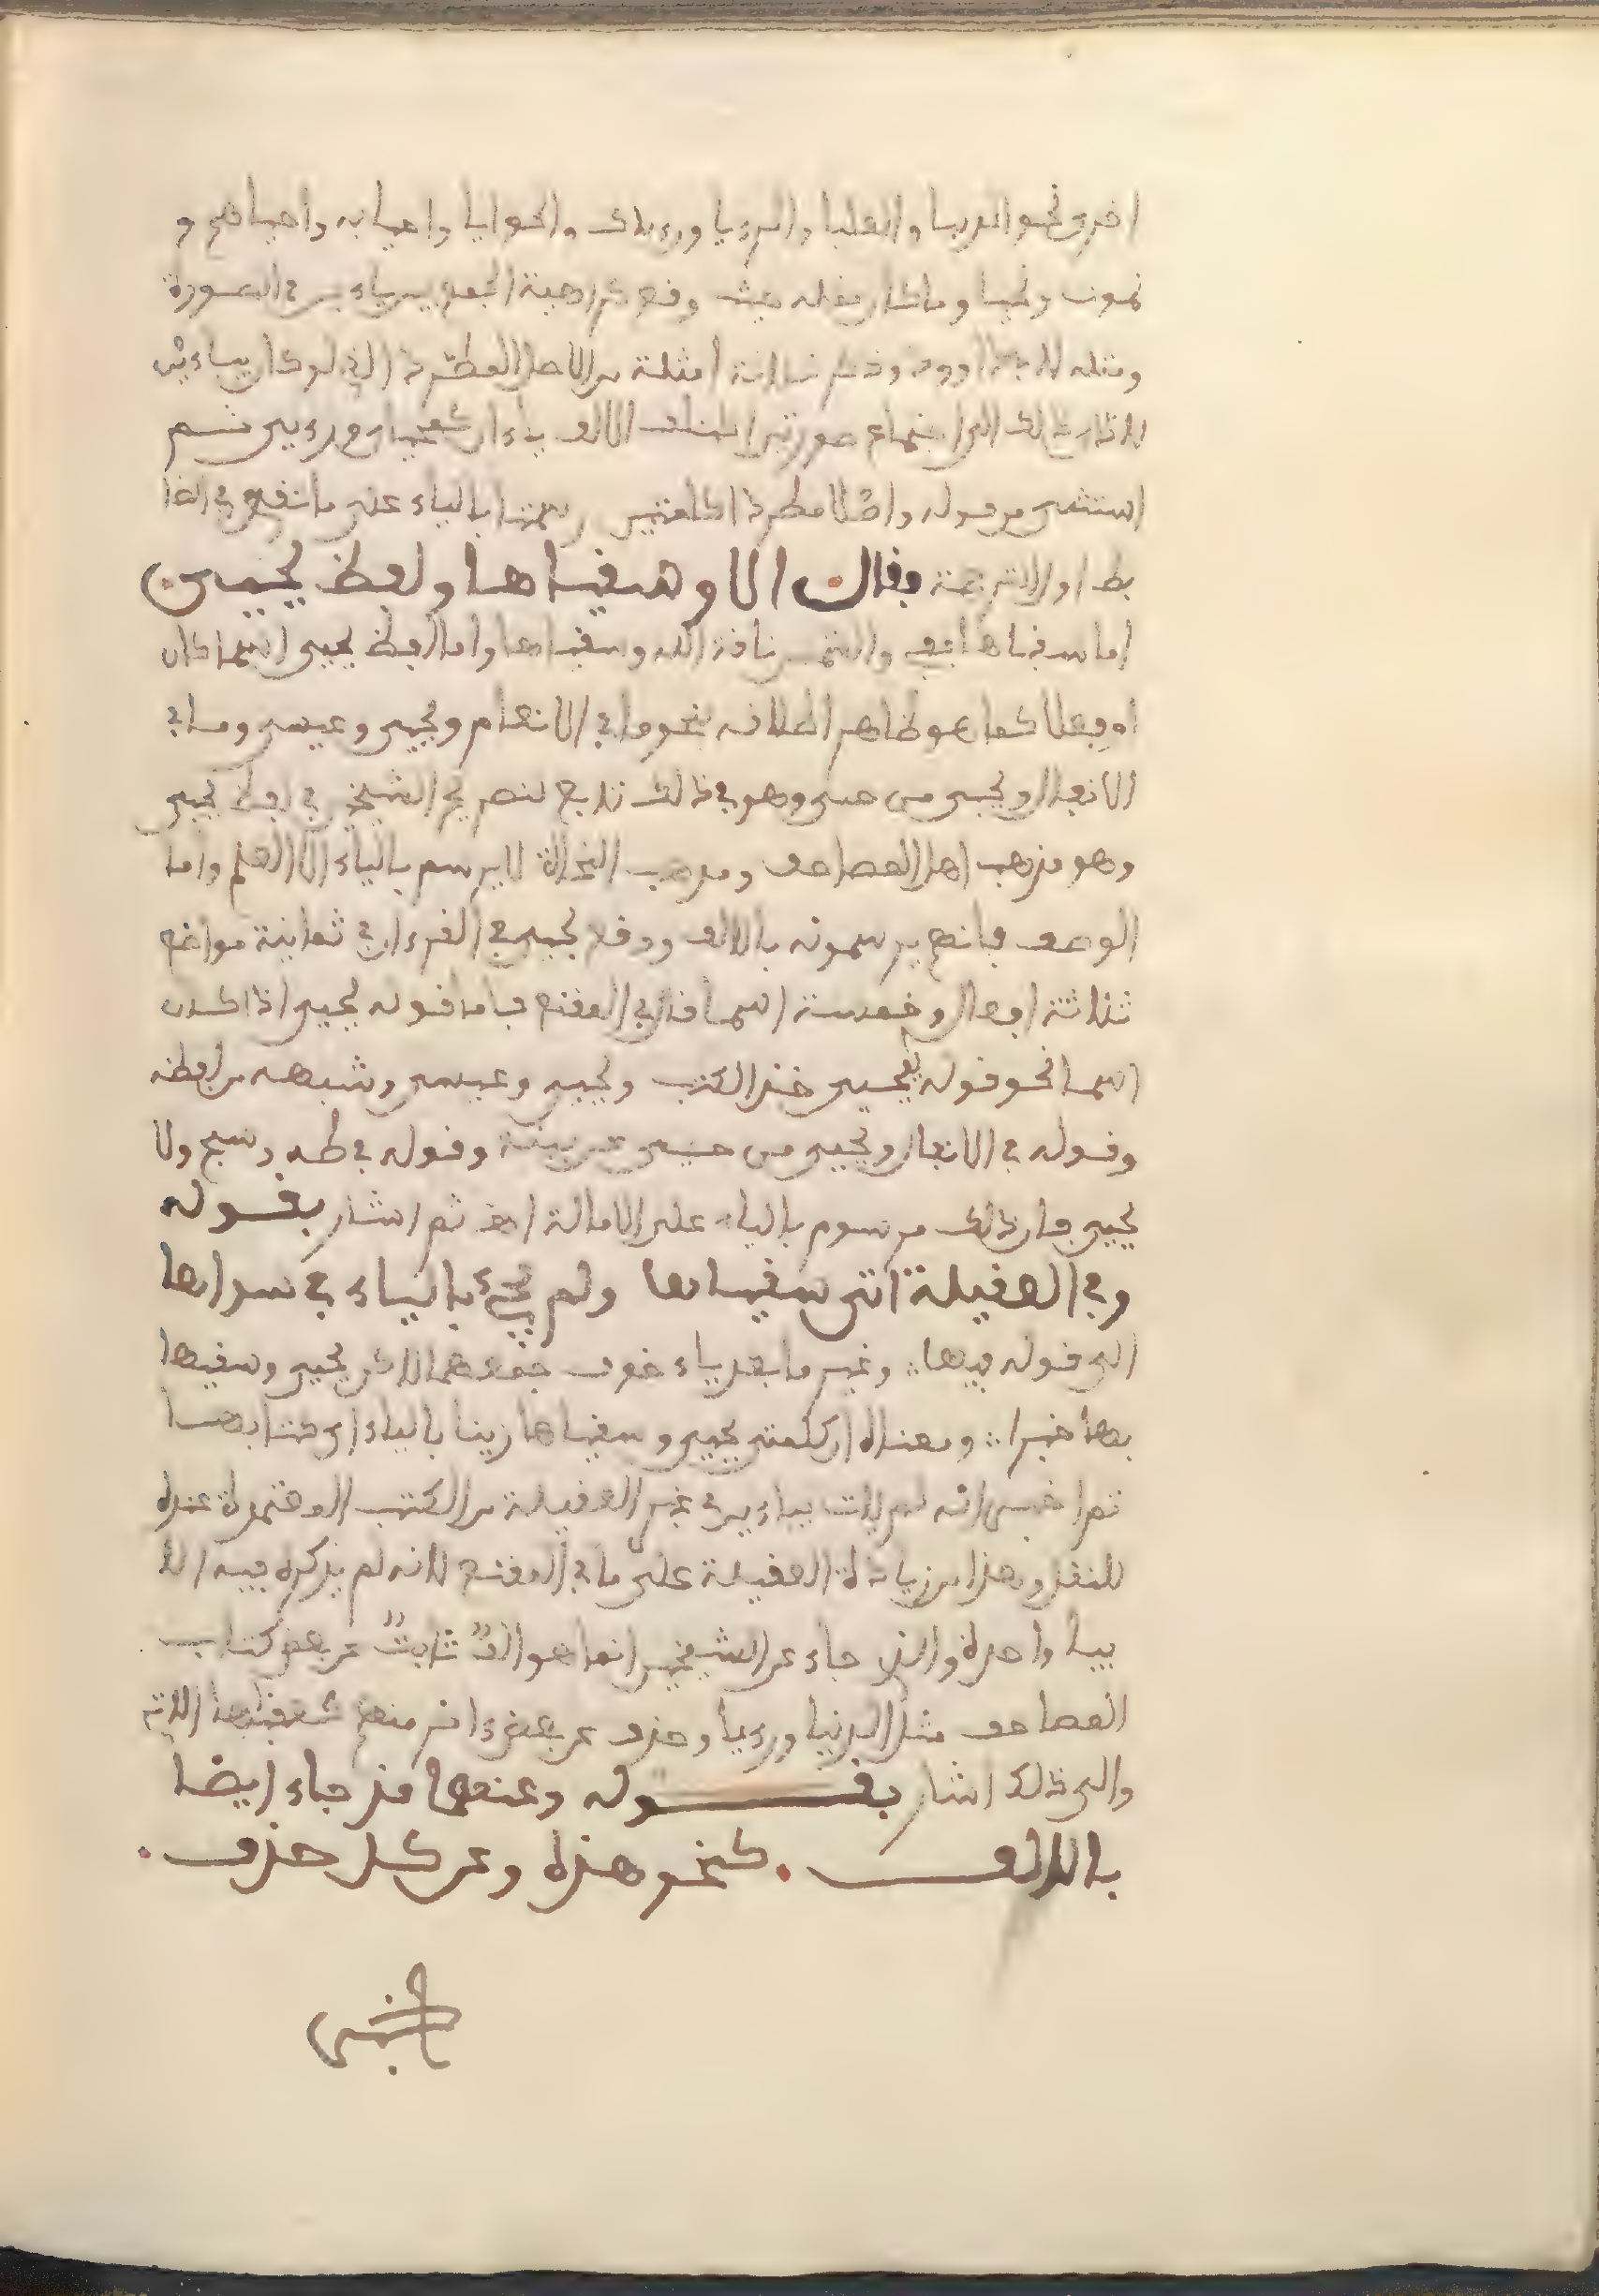 اخرى نحو الدنيا والعليا والرءيا ورءياك والحوايا واحيا به واحياهم و
نموت ونحيا وما كان مثله حيث وقع كراهية الجمع بين ياءين في الصورة
ومثله للإمام أبو داوود وذكر ثلاثة أمثلة من الاصل المطرد الذي لو كان بياءين
لادى ذلك الى اجتماع صورتين اختلف الالف ياء ان كمحياي ورءيى ثم
استثنى من قوله واصلا مطردا كلمتين رسمتا بالياء على ما تقع في الضا
بط اول الترجمة فقال الا وسقياها ولفظ يحيى
اما سقياها ففي والشمس ناقة الله وسقياها واما لفظ يحيى اسما كان
او فعلا كما هو ظاهر اطلاقه نحو ما في الانعام ويحيى وعيسى وما في
الانفال ويحيى من حيى وهو في ذلك تابع لنص في الشيخين في لفظ يحيى
وهو مذهب اهل المصاحف ومذهب النحاة لا يرسم بالياء الا العلم واما
الوصف فانهم يرسمونه بالالف ووقع يحيى في القرءان في ثمانية مواضع
ثلاثة افعال وخمسة اسما قال في المقنع فاما قوله يحيى اذا كان
اسما نحو قوله ييحيى خذ الكتب ويحيى وعيسى وشبهه من لفظه
وقوله في الانفال ويحيى من حيى عن بينة وقوله في طه وسبح ولا
يحيى فان ذلك مرسوم بالياء على الامالة اهـ ثم اشار بقوله
وفي العقيلة اتى سقياها ولم يجئ بالياء في سواها
الى قوله فيها وغير ما بعد ياء خوف جمعهما لاكن يحيى وسقيها
بها حبرا ومعناه ان كلمتي يحيى وسقياها زينا بالياء اي كتابهما
ثم اخبر انه لم يات بياءين في غير العقيلة من الكتب المعتمدة عنده
للنقل وهذا من زيادة العقيلة على ما في المقنع لانه لم يذكره فيه الا
بيا واحدة والذي جاء عن الشيخين انما هو الف ثابت عن بعض كتاب
المصاحف مثل الدنيا ورءيا وحذف عن بعض ءاخر منهم كسقيها الاتي
والى ذلك اشار بقوله وعنهما قد جاء ايضا
بالالف كنحو هذه وعن كل حذف